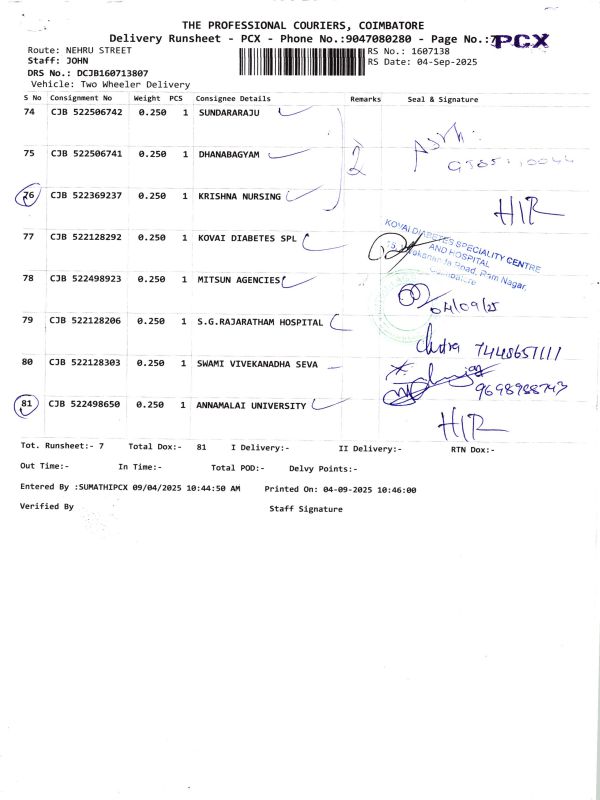 THE PROFESSIONAL COURIERS, COIMBATORE
Delivery Runsheet - PCX - Phone No.:9047080280 - Page No.:7 PCX
Route: NEHRU STREET RS No.: 1607138
Staff: JOHN RS Date: 04-Sep-2025
DRS No.: DCJB160713807
Vehicle: Two Wheeler Delivery
S No Consignment No Weight PCS Consignee Details Remarks Seal & Signature
74 CJB 522506742 0.250 1 SUNDARARAJU
75 CJB 522506741 0.250 1 DHANABAGYAM 2
76 CJB 522369237 0.250 1 KRISHNA NURSING H/R
77 CJB 522128292 0.250 1 KOVAI DIABETES SPL
KOVAI DIABETES SPECIALITY CENTRE
AND HOSPITAL
Road, Ram Nagar,
Coimbatore
78 CJB 522498923 0.250 1 MITSUN AGENCIES 04/09/25
79 CJB 522128206 0.250 1 S.G.RAJARATHAM HOSPITAL 7448651111
80 CJB 522128303 0.250 1 SWAMI VIVEKANADHA SEVA 9698988743
81 CJB 522498650 0.250 1 ANNAMALAI UNIVERSITY H/R
Tot. Runsheet:- 7 Total Dox:- 81 I Delivery:- II Delivery:- RTN Dox:-
Out Time:- In Time:- Total POD:- Delvy Points:-
Entered By :SUMATHIPCX 09/04/2025 10:44:50 AM Printed On: 04-09-2025 10:46:00
Verified By Staff Signature